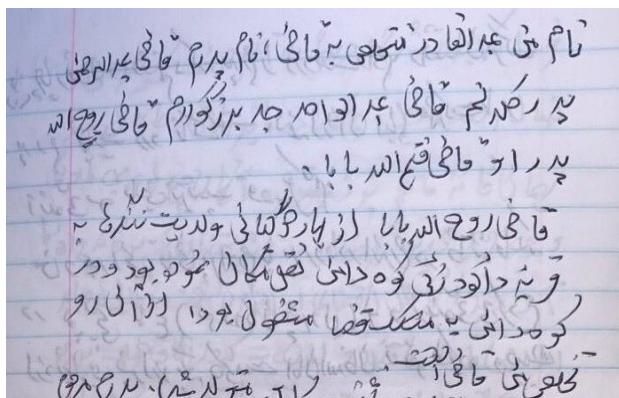 نام من عبدالقادر متخلص به قاضی، نام پدرم قاضی عبدالرحمن
پدر کلانم قاضی عبدالواحد جد بزرگوارم قاضی روح الله
پدر او قاضی فتح الله بابا .
قاضی روح الله بابا از ولایت ننگرهار به
قریه داودزی کوه دامن نقل مکان نموده بود و در
کوه دامن به مسلک قضا مشغول بود، از آن رو
تخلص من قاضی است.